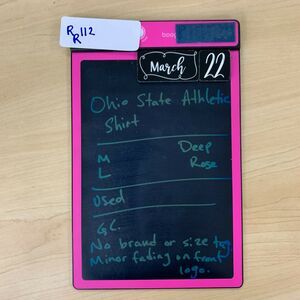 RR112
boog
March 22
Ohio State Athletic
Shirt
M Deep
L Rose
Used
GC.
No brand or size tag.
Minor fading on front
logo.